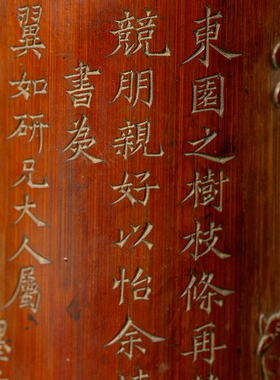 東園之樹枝條再
競朋親好以怡余
書
翼如研兄大人屬